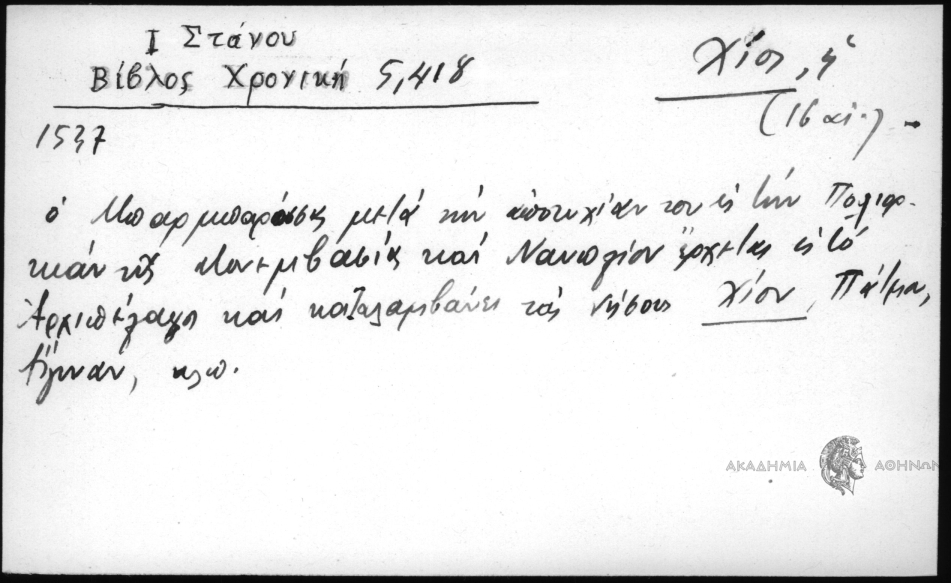 Ι Στάνου
Βίβλος Χρονική 5,418
Χίος, ἡ
(16 αἰ.)
1537
ὁ Μπαρμπαρόσσας μετά τήν ἀποτυχίαν του εἰς τήν Πολιορ-
κίαν τῆς Μονεμβασίας καί Ναυπλίου ἔρχεται εἰς τό
Ἀρχιπέλαγος καί καταλαμβάνει τάς νήσους Χίον, Πάτμον,
Αἴγιναν, κλπ.
ΑΚΑΔΗΜΙΑ ΑΘΗΝΩΝ